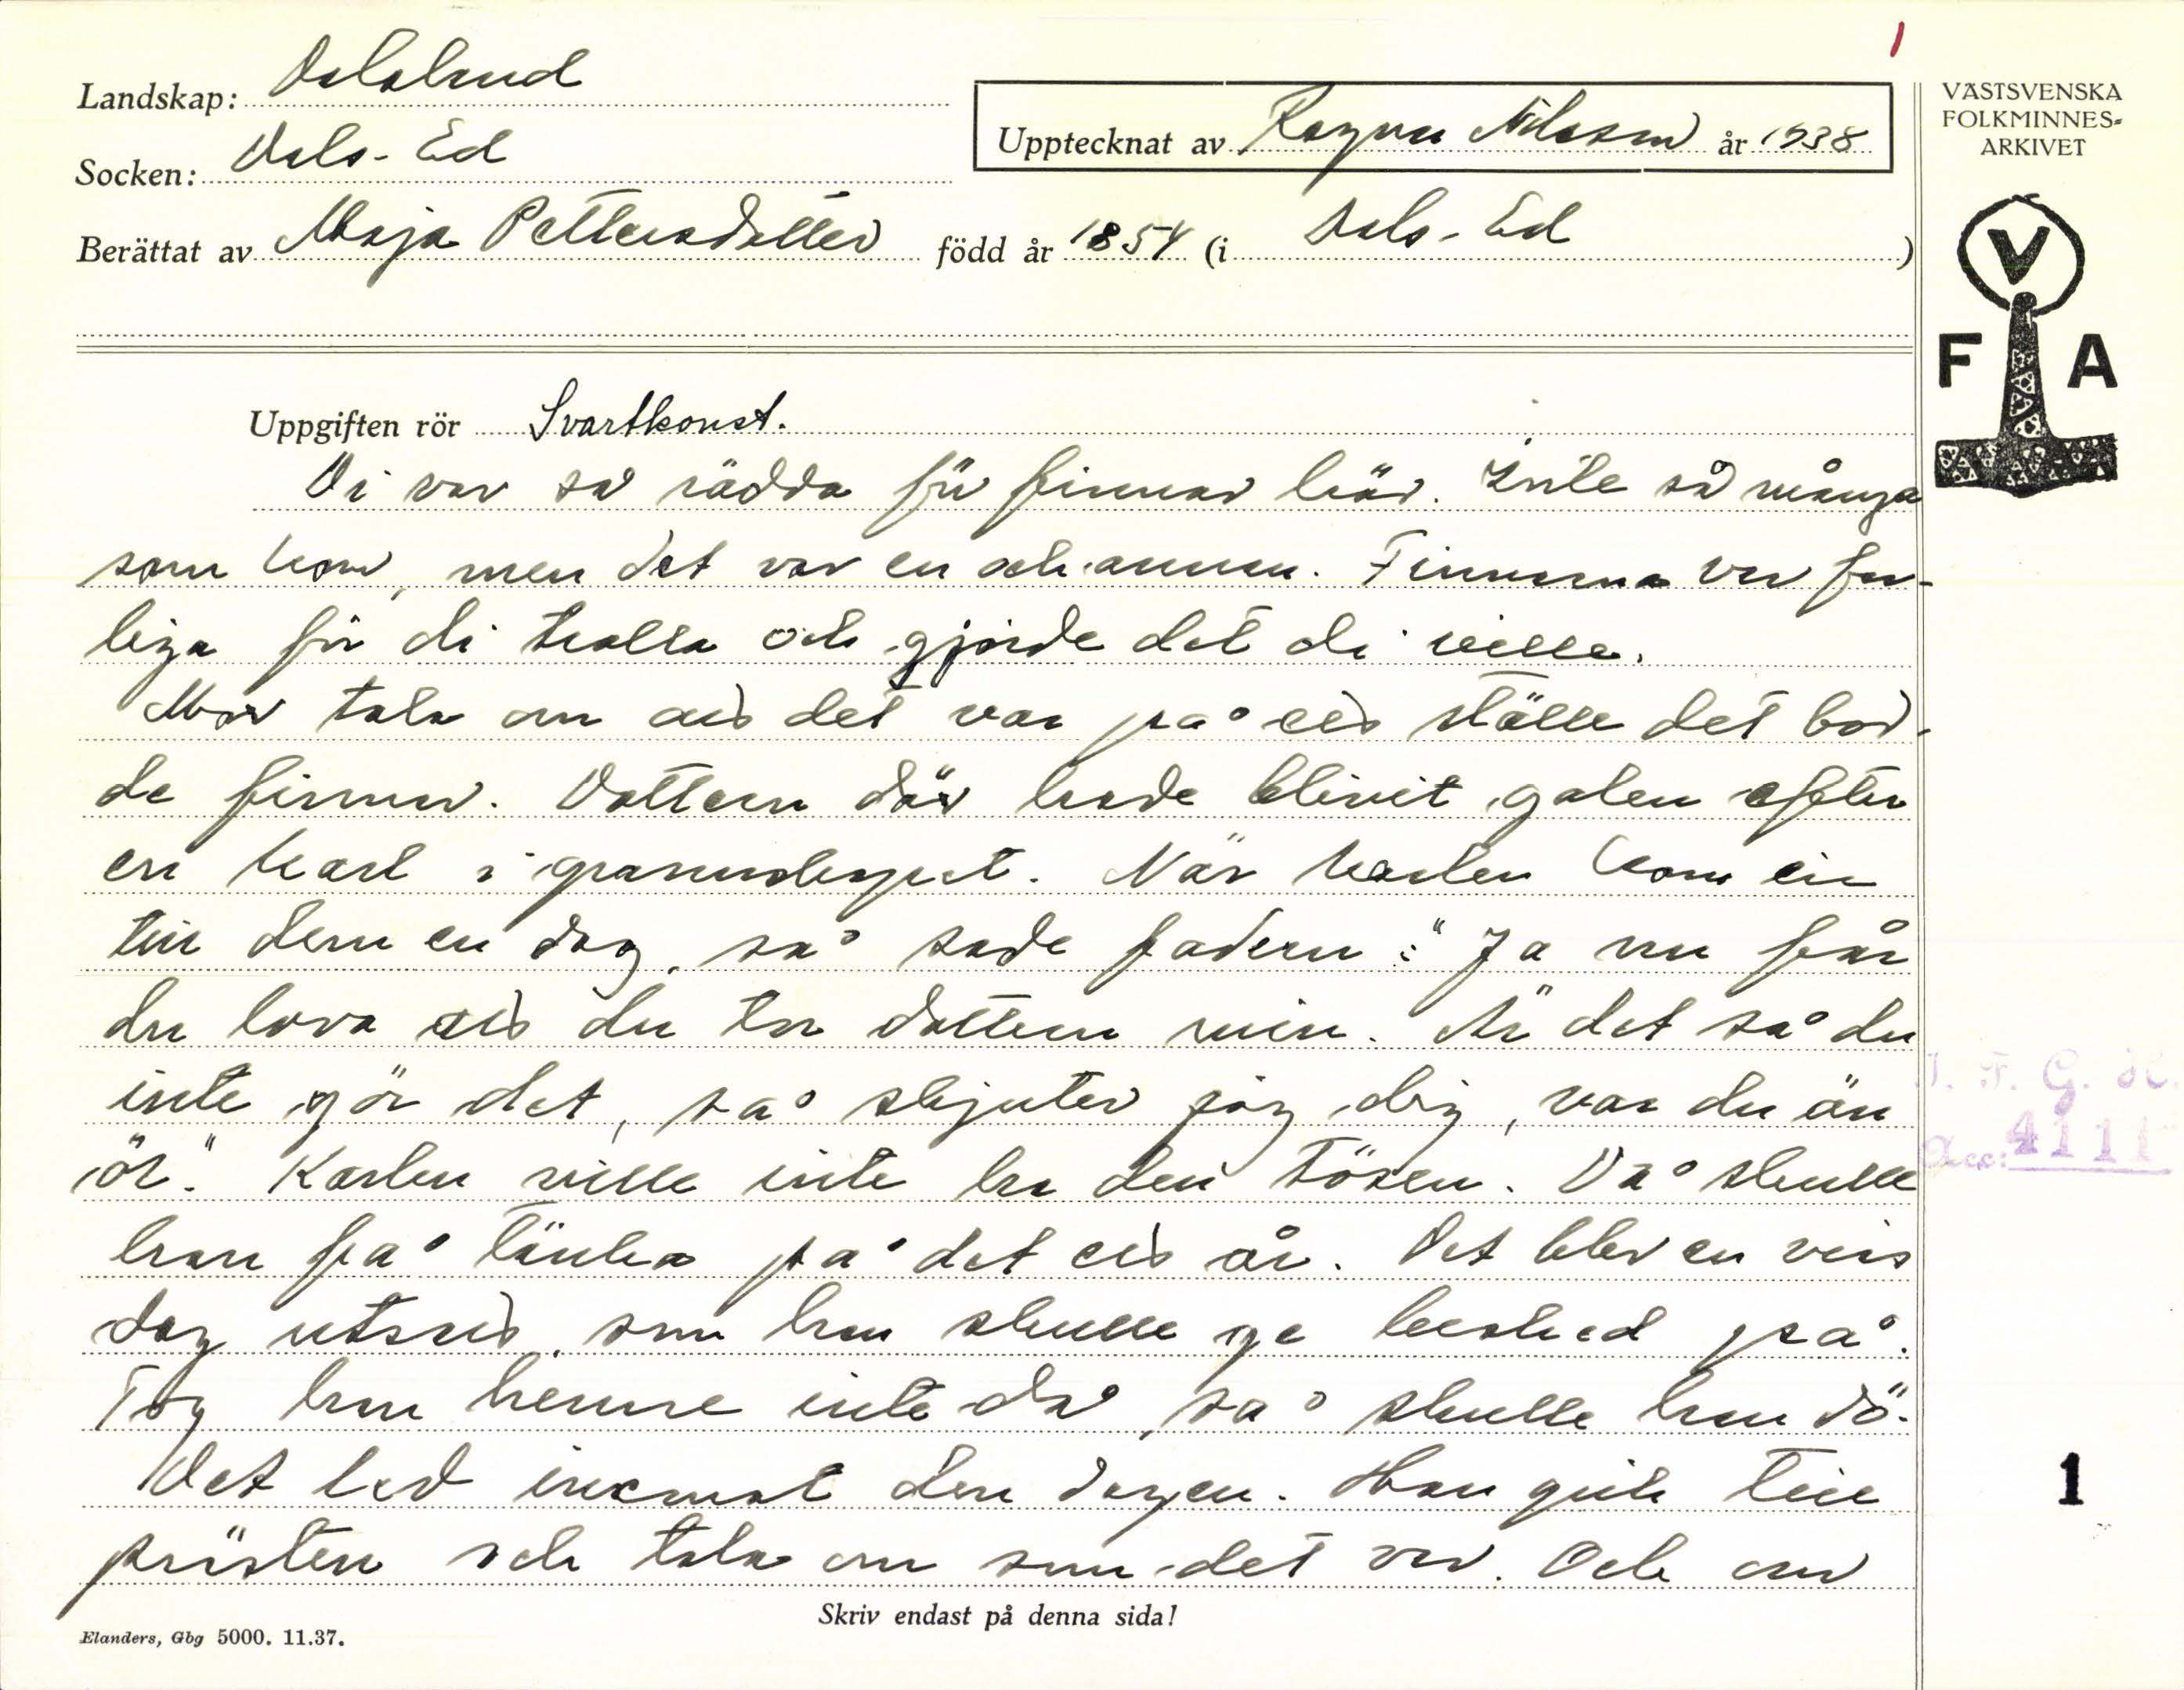 1
Landskap: Dalsland
Upptecknat av Ragnar Nilsson år 1938
VÄSTSVENSKA
FOLKMINNES-
ARKIVET
Socken: Dals-Ed
Berättat av Maja Pettersdotter född år 1854 (i Dals-Ed )
V
F A
Uppgiften rör Svartkonst.
Di var så rädda för finnar här. Inte så många
som kom, men det var en och annan. Finnarna var far-
liga för di trolla och gjorde det di ville.
Mor tala om att det var på ett ställe det bod-
de finnar. Dottern där hade blivit galen efter
en karl i grannskapet. När karlen kom in
till dem en dag, så sade fadern: "Ja nu får
du lova att du tar dottern min. Är det så du
inte gör det, så skjuter jag dig, var du än
är." Karlen ville inte ha den tösen. Då skulle
han få tänka på det ett år. Det blev en viss
dag utsatt, som han skulle ge besked på.
Tog han henne inte då, så skulle han dö.
Det led inemot den dagen. Han gick till
prästen och tala om som det var. Och om
J. F. G. H.
Acc: 4111
1
Skriv endast på denna sida!
Elanders, Gbg 5000. 11.37.